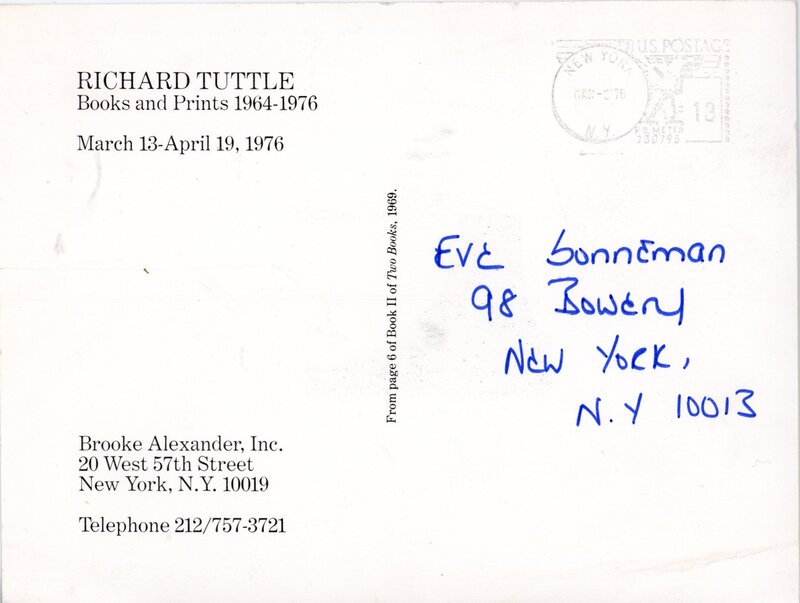 RICHARD TUTTLE
Books and Prints 1964-1976
March 13-April 19, 1976
Brooke Alexander, Inc.
20 West 57th Street
New York, N.Y. 10019
Telephone 212/757-3721
From page 6 of Book II of Two Books, 1969.
U.S. POSTAGE
NEW YORK
N.Y.
13
Eve Sonneman
98 Bowery
New York,
N.Y 10013